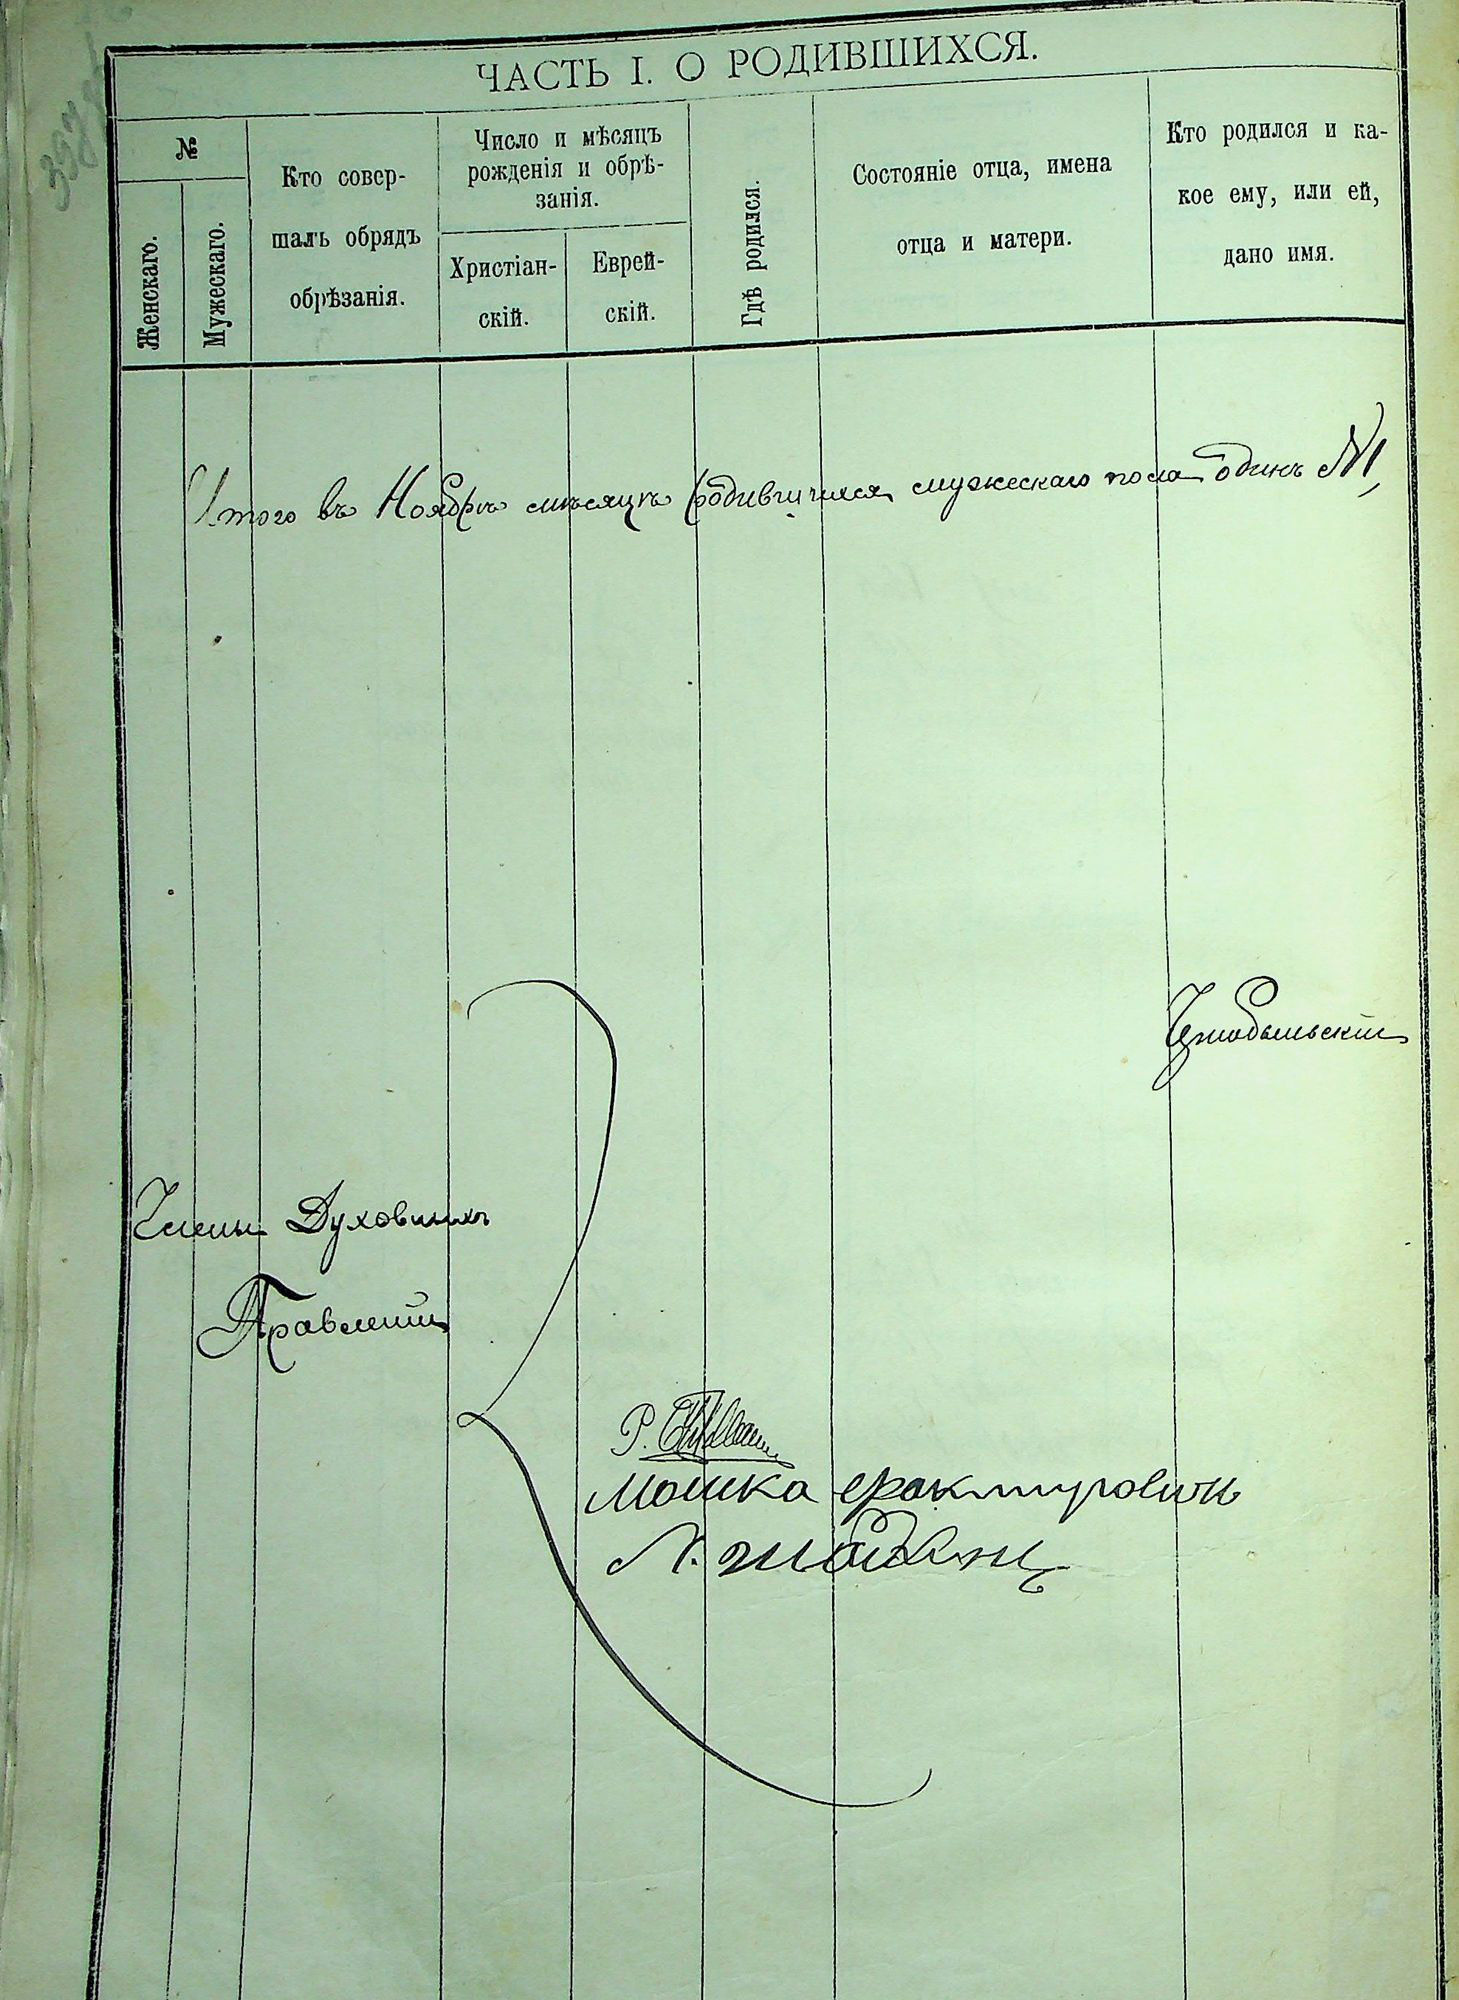 ЧАСТЬ I. О РОДИВШИХСЯ.
№
Женскаго.
Мужескаго.
Кто совер-
шалъ обрядъ
обрѣзанія.
Число и мѣсяцъ
рожденія и обрѣ-
занія.
Христіан-
скій.
Еврей-
скій.
Гдѣ родился.
Состояніе отца, имена
отца и матери.
Кто родился и ка-
кое ему, или ей,
дано имя.
Итого въ Ноябрѣ мѣсяцѣ родившихся мужескаго пола одинъ №1,
Члены Духовныхъ
Правленій
Р.
Мошка
Л.